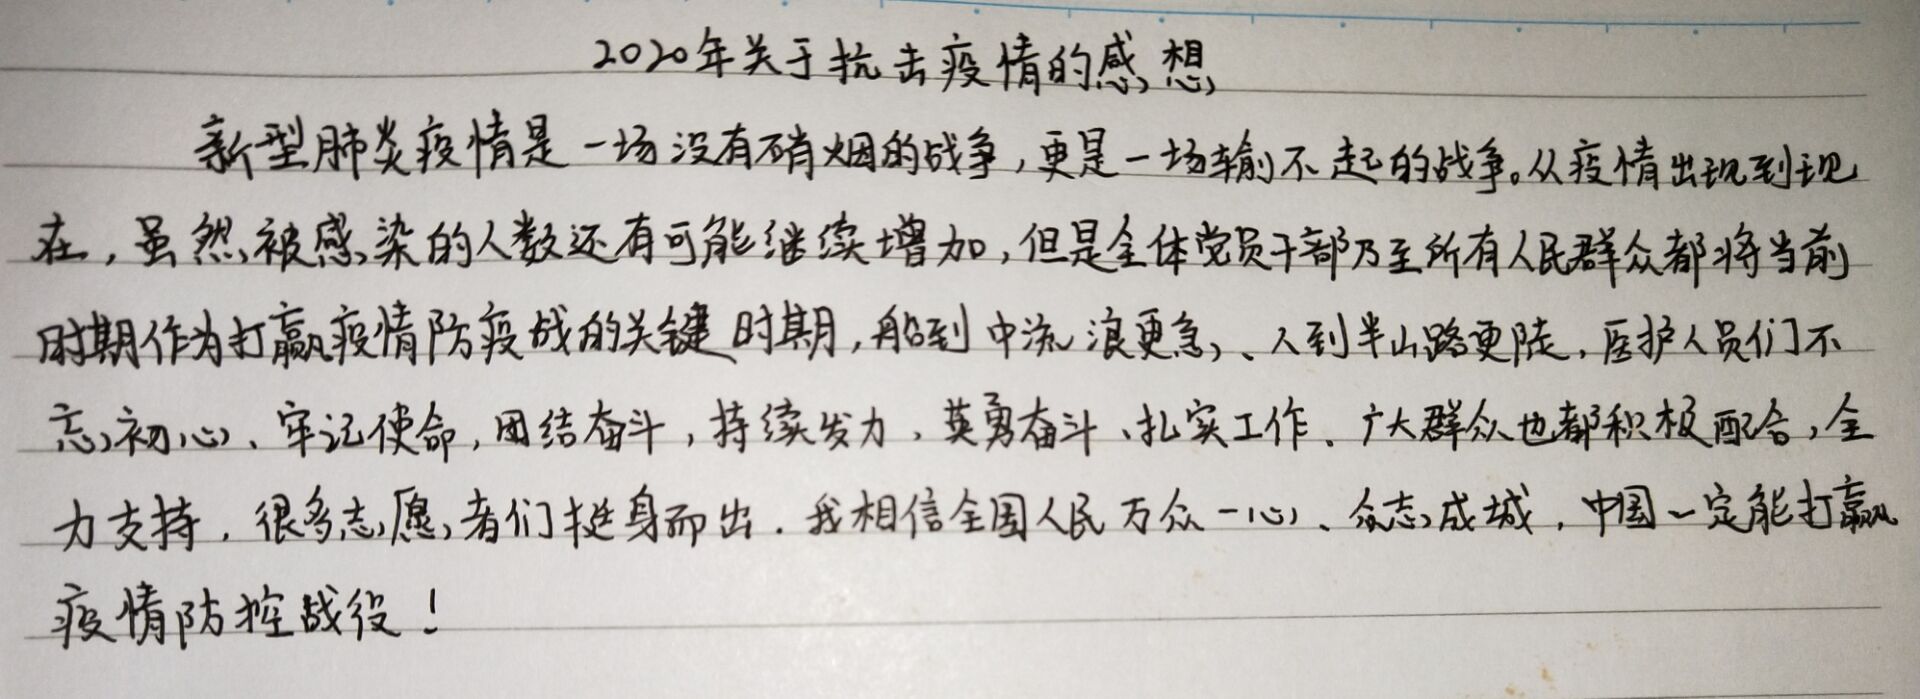 2020年关于抗击疫情的感想
新型肺炎疫情是一场没有硝烟的战争,更是一场输不起的战争。从疫情出现到现
在,虽然被感染的人数还有可能继续增加,但是全体党员干部乃至所有人民群众都将当前
时期作为打赢疫情防疫战的关键时期,船到中流浪更急、人到半山路更陡,医护人员们不
忘初心、牢记使命,团结奋斗,持续发力,英勇奋斗、扎实工作.广大群众也都积极配合,全
力支持,很多志愿者们挺身而出.我相信全国人民万众一心、众志成城,中国一定能打赢
疫情防控战役!